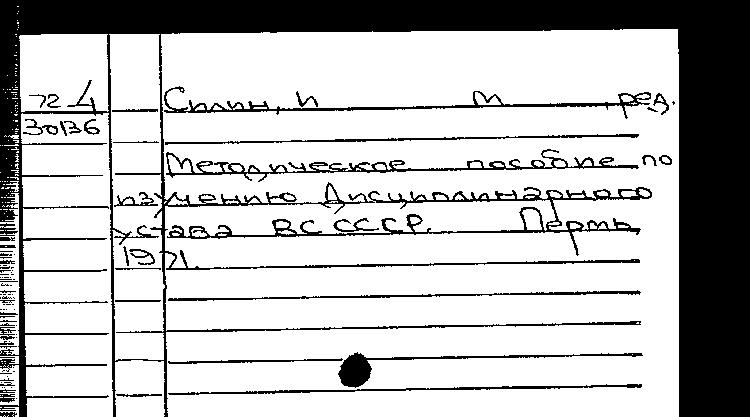 72-4
30136
Силин, И М , ред.
Методическое пособие по
изучению Дисциплинарного
устава ВС СССР. Пермь,
1971.